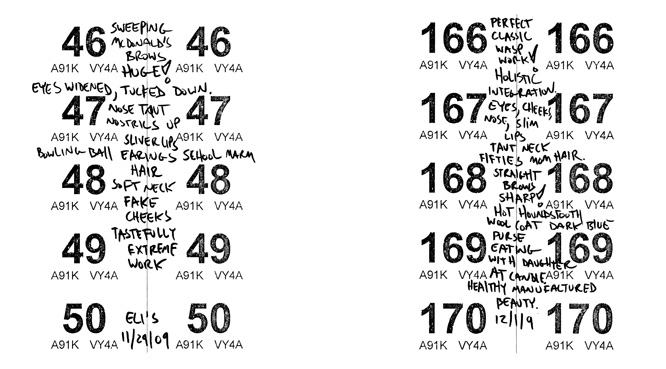 46 46
A91K VY4A A91K VY4A
47 47
A91K VY4A A91K VY4A
48 48
A91K VY4A A91K VY4A
49 49
A91K VY4A A91K VY4A
50 50
A91K VY4A A91K VY4A
SWEEPING
McDONALD'S
BROWS
HUGE!
EYES WIDENED, TUCKED DOWN.
NOSE TAUT
NOSTRILS UP
SLIVER LIPS
BOWLING BALL EARINGS SCHOOL MARM
HAIR
SOFT NECK
FAKE
CHEEKS
TASTEFULLY
EXTREME
WORK
ELI'S
11/29/09
166 166
A91K VY4A A91K VY4A
167 167
A91K VY4A A91K VY4A
168 168
A91K VY4A A91K VY4A
169 169
A91K VY4A A91K VY4A
170 170
A91K VY4A A91K VY4A
PERFECT
CLASSIC
WASP
WORK!
HOLISTIC
INTEGRATION.
EYES, CHEEKS
NOSE, SLIM
LIPS
TAUT NECK
FIFTIES MOM HAIR.
STRAIGHT
BROWS
SHARP!
HOT HOUNDSTOOTH
WOOL COAT DARK BLUE
PURSE
EATING
WITH DAUGHTER
AT CANDLE
HEALTHY MANUFACTURED
BEAUTY.
12/1/9